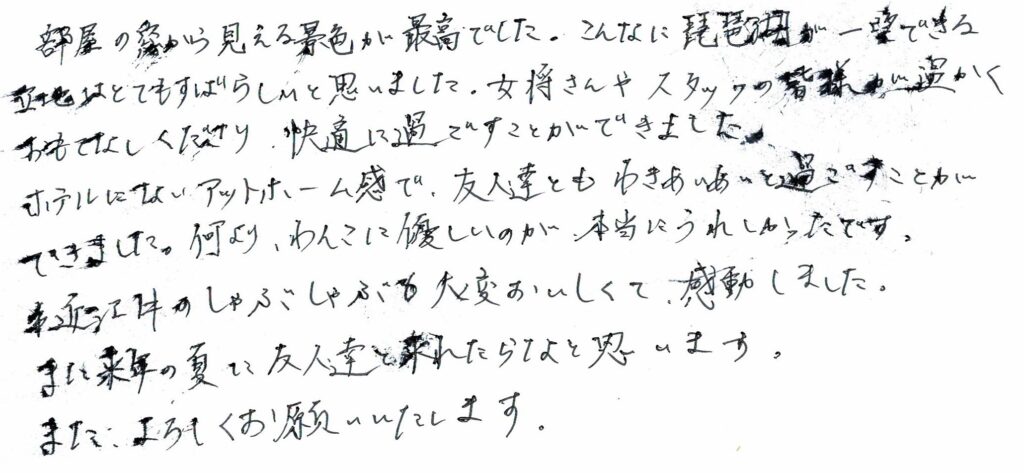 部屋の窓から見える景色が最高でした。こんなに琵琶湖が一望できる
立地はとてもすばらしいと思いました。女将さんやスタッフの皆様が温かく
おもてなしくださり、快適に過ごすことができました。
ホテルにないアットホーム感で、友人達ともわきあいあいと過ごすことが
できました。何より、わんこに優しいのが、本当にうれしかったです。
近江牛のしゃぶしゃぶも大変おいしくて、感動しました。
また来年の夏に友人達と来れたらなと思います。
また、よろしくお願いいたします。